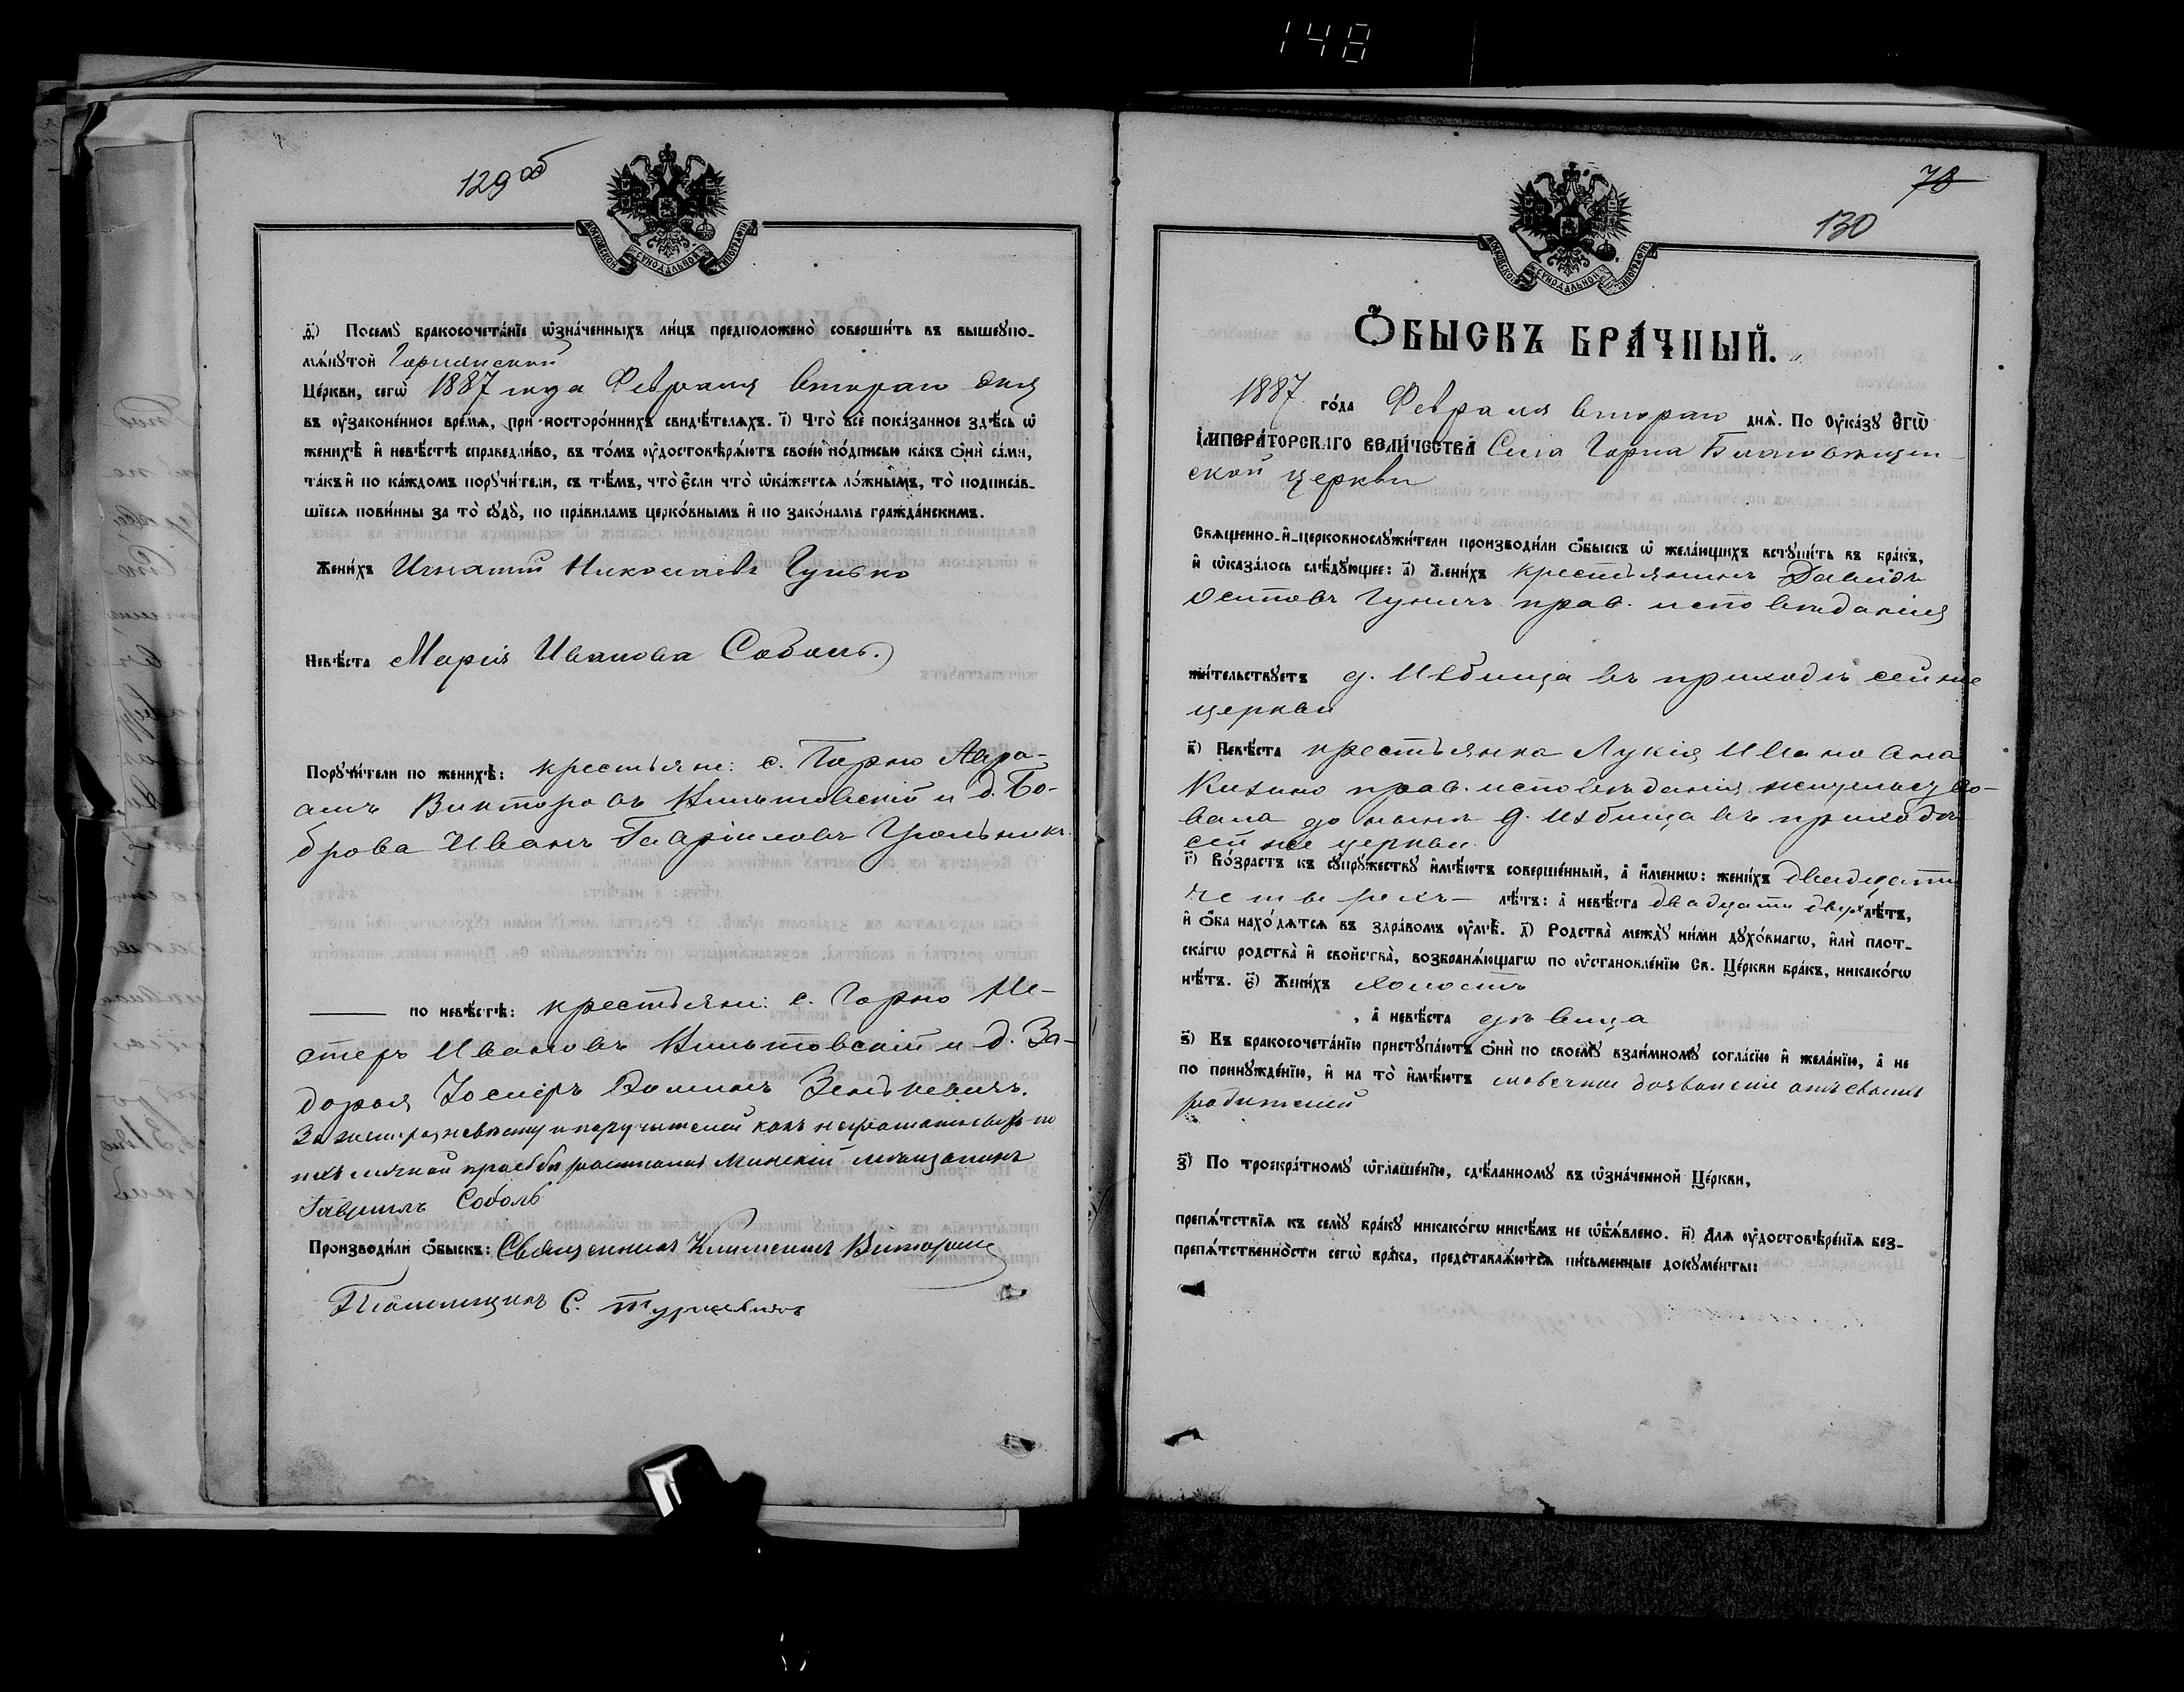 148
129 об
МОСКОВСКОЙ СѴНОДАЛЬНОЙ ТИПОГРАФІИ
д҃і) Посемꙋ̀ бракосочета́нїе ѡ҆зна́ченныхъ ли́цъ предположено̀ соверши́ть въ вышеꙋпо-
мѧ́нꙋтой Горнянской
Це́ркви, сегѡ̀ 1887 года Февраля втораго дня
въ ᲂу҆зако́ненное вре́мѧ, при посторо́ннихъ свидѣ́телѧхъ. і҃) Что̀ всѐ пока́занное здѣ́сь ѡ҆
женихѣ̀ и҆ невѣ́стѣ справедли́во, въ то́мъ ᲂу҆достовѣрѧ́ютъ свое́ю по́дписью ка́къ ѻ҆нѝ са́ми,
та́къ и҆ по ка́ждомъ порꙋчи́тели, съ тѣ́мъ, что̀ є҆́сли что̀ ѡ҆ка́жетсѧ ло́жнымъ, то̀ подписа́в-
шїесѧ пови́нны за то̀ сꙋдꙋ̀, по пра́виламъ церко́внымъ и҆ по зако́намъ гражда́нскимъ.
Жени́хъ Игнатій Николаевъ Гунько
Невѣ́ста Марія Иванова Соболь.
Порꙋчи́тели по женихѣ̀: крестьяне: с. Горно Авра-
амъ Викторовъ Кильтовскій и д. Бо-
брова Иванъ Гавріиловъ
по невѣ́стѣ: крестьяне: с. Горно Не-
стеръ Ивановъ Кильтовскій и д. За-
доров Іосифъ Зенькевичъ.
За жениха, невѣсту и поручителей какъ неграмотныхъ по
ихъ личной просьбѣ росписался Минскій мѣщанинъ
Гавріилъ Соболь
Производи́ли ѻ҆́быскъ: Священникъ Климентъ
Псаломщикъ С. Турцевичъ
78
130
МОСКОВСКОЙ СѴНОДАЛЬНОЙ ТИПОГРАФІИ
Ѻ҆́БЫСКЪ БРА́ЧНЫЙ.
1887 го́да Февраля втораго днѧ̀. По ᲂу҆ка́зꙋ Е҆гѡ̀
І҆мпера́торскагѡ вели́чества Села Горна Благовѣщен
ской церкви
Свѧще́нно-и҆-церковнослꙋжи́тели производи́ли ѻ҆́быскъ ѡ҆ жела́ющихъ встꙋпи́ть въ бра́къ,
и҆ ѡ҆каза́лось слѣ́дꙋющее: а҃) Жени́хъ крестьянинъ Давидъ
Осиповъ Гуничъ прав. исповѣданія
жи́тельствꙋетъ д. Избища въ приходѣ сей же
церкви
в҃) Невѣ́ста крестьянка Лукія Иванова
прав. исповѣданія жительство-
вала до нынѣ д. Избища въ приходѣ
сей же церкви
г҃) Во́зрастъ къ сꙋпрꙋ́жествꙋ и҆мѣ́ютъ соверше́нный, а҆ и҆́менно: жени́хъ двадцати
четырехъ — лѣ́тъ: а҆ невѣ́ста двадцати двухъ лѣ́тъ,
и҆ ѻ҆́ба нахо́дѧтсѧ въ здра́вомъ ᲂу҆мѣ̀. д҃) Родства̀ междꙋ̀ ни́ми дꙋхо́внагѡ, и҆лѝ плот-
ска́гѡ родства̀ и҆ свойства̀, возбранѧ́ющагѡ по ᲂу҆становле́нїю Св. Це́ркви бра́къ, никако́гѡ
нѣ́тъ. є҃) Жени́хъ холостъ
, а҆ невѣ́ста дѣвица
ѕ҃) Къ бракосочета́нїю пристꙋпа́ютъ ѻ҆нѝ по своемꙋ̀ взаи́мномꙋ согла́сїю и҆ жела́нїю, а҆ не
по принꙋжде́нїю, и҆ на то̀ и҆мѣ́ютъ словесное дозволеніе отъ своихъ
родителей
з҃) По троекра́тномꙋ ѡ҆глаше́нїю, сдѣ́ланномꙋ въ ѡ҆зна́ченной Це́ркви,
препѧ́тствїѧ къ семꙋ̀ бра́кꙋ никако́гѡ никѣ́мъ не ѡ҆бъѧ́влено. и҃) Длѧ ᲂу҆достовѣре́нїѧ без-
препѧ́тственности сегѡ̀ бра́ка, представлѧ́ютсѧ пи́сьменные докꙋме́нты: